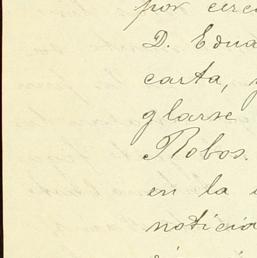 por cerc
D. Edua
carta,
glarse
Robos.
en la
noticia